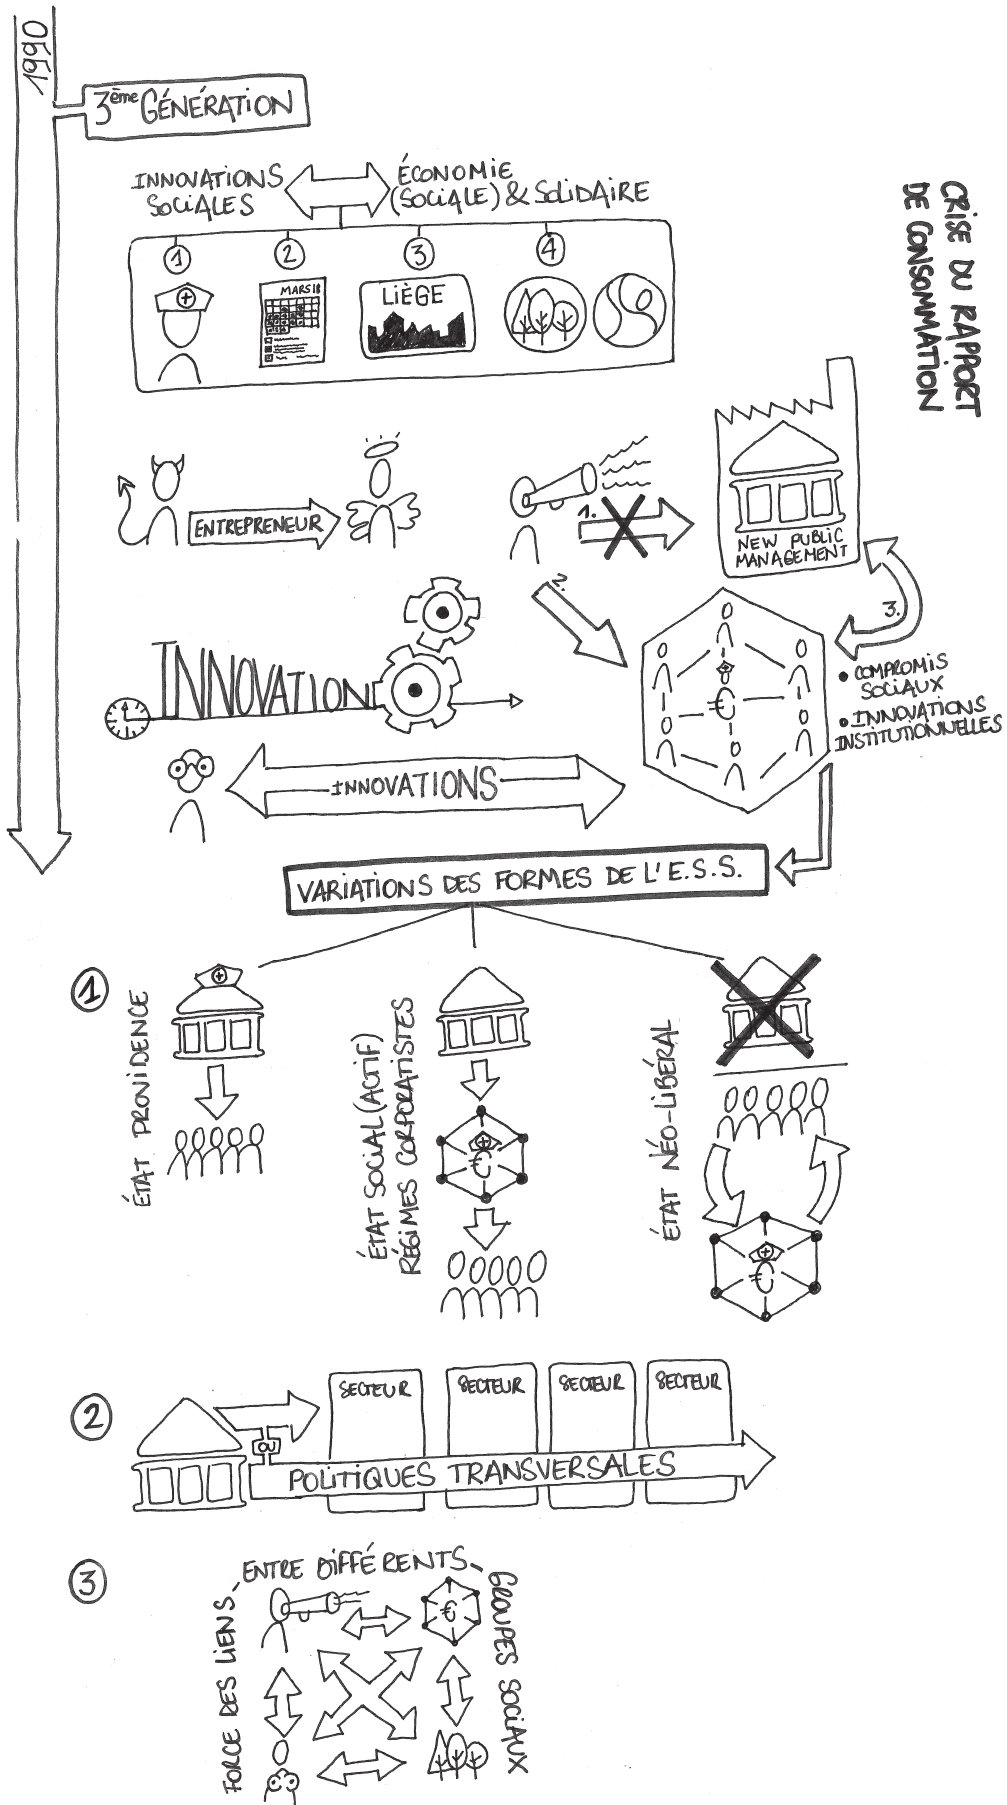 1990
3ème GÉNÉRATION
INNOVATIONS
SOCIALES
ÉCONOMIE
(SOCIALE) & SOLIDAIRE
CRISE DU RAPPORT
DE CONSOMMATION
1
2
3
4
MARS 18
LIÈGE
ENTREPRENEUR
1.
NEW PUBLIC
MANAGEMENT
2.
3.
INNOVATION
€
• COMPROMIS
SOCIAUX
• INNOVATIONS
INSTITUTIONNELLES
INNOVATIONS
VARIATIONS DES FORMES DE L'E.S.S.
1
ÉTAT PROVIDENCE
ÉTAT SOCIAL (ACTIF)
RÉGIMES CORPORATISTES
€
ÉTAT NÉO-LIBÉRAL
€
2
SECTEUR
SECTEUR
SECTEUR
SECTEUR
OU
POLITIQUES TRANSVERSALES
3
FORCE DES LIENS
ENTRE DIFFÉRENTS
GROUPES SOCIAUX
€